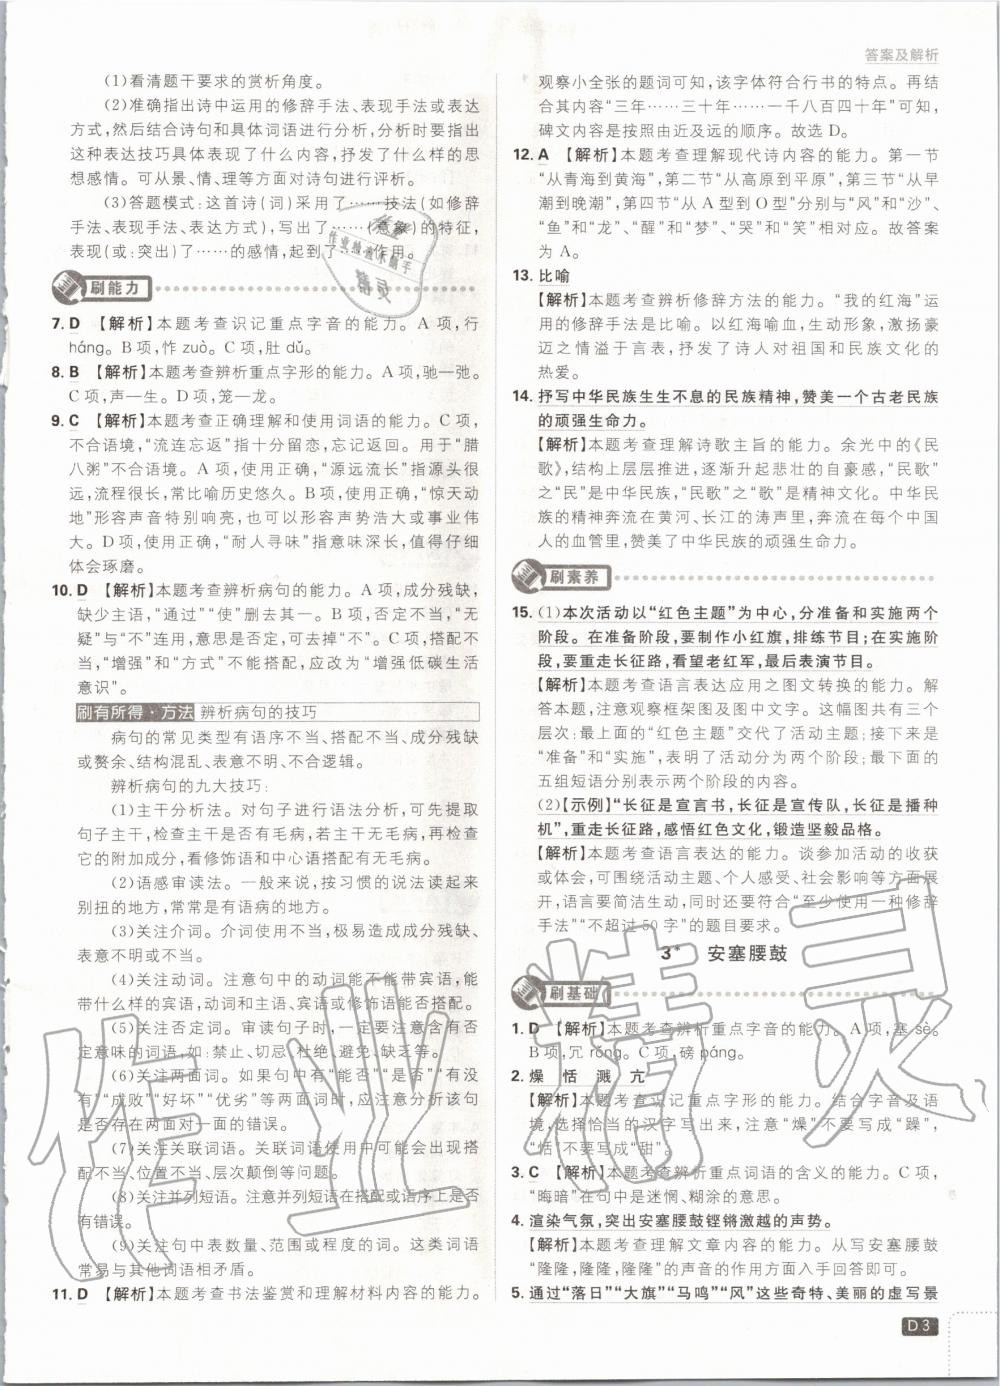 答案及解析
(1)看清题干要求的赏析角度。
(2)准确指出诗中运用的修辞手法、表现手法或表达
方式,然后结合诗句和具体词语进行分析,分析时要答出
这种表达技巧具体表现了什么内容,抒发了什么样的思
想感情。可从景、情、理等方面对诗句进行评析。
(3)答题模式:这首诗(词)采用了……技法(如修辞
手法、表现手法、表达方式),写出了……(意象)的特征,
表现(或:突出)了……的感情,起到了……作用。
刷能力
7. D 【解析】本题考查识记重点字音的能力。A 项,行
háng。B 项,怍 zuò。C 项,肚 dǔ。
8. B 【解析】本题考查辨析重点字形的能力。A 项,驰—弛。
C 项,声—生。D 项,笼—龙。
9. C 【解析】本题考查正确理解和使用词语的能力。C 项,
不合语境,“流连忘返”指十分留恋,忘记返回。用于“腊
八粥”不合语境。A 项,使用正确,“源远流长”指源头很
远,流程很长,常比喻历史悠久。B项,使用正确,“惊天动
地”形容声音特别响亮,也可以形容声势浩大或事业伟
大。D 项,使用正确,“耐人寻味”指意味深长,值得仔细
体会琢磨。
10. D 【解析】本题考查辨析病句的能力。A 项,成分残缺,
缺少主语,“通过”“使”删去其一。B 项,否定不当,“无
疑”与“不”连用,意思是否定,可去掉“不”。C 项,搭配不
当,“增强”和“方式”不能搭配,应改为“增强低碳生活
意识”。
刷有所得·方法 辨析病句的技巧
病句的常见类型有语序不当、搭配不当、成分残缺
或赘余、结构混乱、表意不明、不合逻辑。
辨析病句的九大技巧:
(1)主干分析法。对句子进行语法分析,可先提取
句子主干,检查主干是否有毛病,若主干无毛病,再检查
它的附加成分,看修饰语和中心语搭配有无毛病。
(2)语感审读法。一般来说,按习惯的说法读起来
别扭的地方,常常是有语病的地方。
(3)关注介词。介词使用不当,极易造成成分残缺、
表意不明或不当。
(4)关注动词。注意句中的动词能不能带宾语,能
带什么样的宾语,动词和主语、宾语或修饰语能否搭配。
(5)关注否定词。审读句子时,一定要注意包含否
定意味的词语,如:禁止、切忌、杜绝、避免、缺乏等。
(6)关注两面词。如果句中有“能否”“是否”“有没
有”“成败”“好坏”“优劣”等两面词时,应注意分析该句
是否存在两面对一面的错误。
(7)关注关联词语。关联词使用中可能会出现搭
配不当、位置不当、层次颠倒等问题。
(8)关注并列短语。注意并列短语在搭配或语序上是否
有错误。
(9)关注句中表数量、范围或程度的词。这类词语
常易与其他词语相矛盾。
11. D 【解析】本题考查书法鉴赏和理解材料内容的能力。
观察小全张的题词可知,该字体符合行书的特点。再结
合其内容“三年……三十年……一千八百四十年”可知,
碑文内容是按照由近及远的顺序。故选 D。
12. A 【解析】本题考查理解现代诗内容的能力。第一节
“从青海到黄海”,第二节“从高原到平原”,第三节“从早
潮到晚潮”,第四节“从 A 型到 O 型”分别与“风”和“沙”、
“鱼”和“龙”、“醒”和“梦”、“哭”和“笑”相对应。故答案
为 A。
13. 比喻
【解析】本题考查辨析修辞方法的能力。“我的红海”运
用的修辞手法是比喻。以红海喻血,生动形象,激扬豪
迈之情溢于言表,抒发了诗人对祖国和民族文化的
热爱。
14. 抒写中华民族生生不息的民族精神,赞美一个古老民族
的顽强生命力。
【解析】本题考查理解诗歌主旨的能力。余光中的《民
歌》,结构上层层推进,逐渐升起悲壮的自豪感,“民歌”
之“民”是中华民族,“民歌”之“歌”是精神文化。中华民
族的精神奔流在黄河、长江的涛声里,奔流在每个中国
人的血管里,赞美了中华民族的顽强生命力。
刷素养
15. (1)本次活动以“红色主题”为中心,分准备和实施两个
阶段。在准备阶段,要制作小红旗,排练节目;在实施阶
段,要重走长征路,看望老红军,最后表演节目。
【解析】本题考查语言表达应用之图文转换的能力。解
答本题,注意观察框架图及图中文字。这幅图共有三个
层次:最上面的“红色主题”交代了活动主题;接下来是
“准备”和“实施”,表明了活动分为两个阶段;最下面的
五组短语分别表示两个阶段的内容。
(2)【示例】“长征是宣言书,长征是宣传队,长征是播种
机”,重走长征路,感悟红色文化,锻造坚毅品格。
【解析】本题考查语言表达的能力。谈参加活动的收获
或体会,可围绕活动主题、个人感受、社会影响等方面展
开,语言要简洁生动,同时还要符合“至少使用一种修辞
手法”“不超过 50 字”的题目要求。
3* 安塞腰鼓
刷基础
1. D 【解析】本题考查辨析重点字音的能力。A 项,塞 sè。
B 项,冗 rǒng。C 项,磅 páng。
2. 燥 恬 溅 亢
【解析】本题考查识记重点字形的能力。结合字音及语
境,选择恰当的汉字书写即可。注意“燥”不要写成“躁”,
“恬”不要写成“甜”。
3. C 【解析】本题考查辨析重点词语的含义的能力。C 项,
“晦暗”在句中是迷惘、糊涂的意思。
4. 渲染气氛,突出安塞腰鼓铿锵激越的声势。
【解析】本题考查理解文章内容的能力。从写安塞腰鼓
“隆隆,隆隆,隆隆”的声音的作用方面入手回答即可。
5. 通过“落日”“大旗”“马鸣”“风”这些奇特、美丽的虚写景
D3
作业精灵